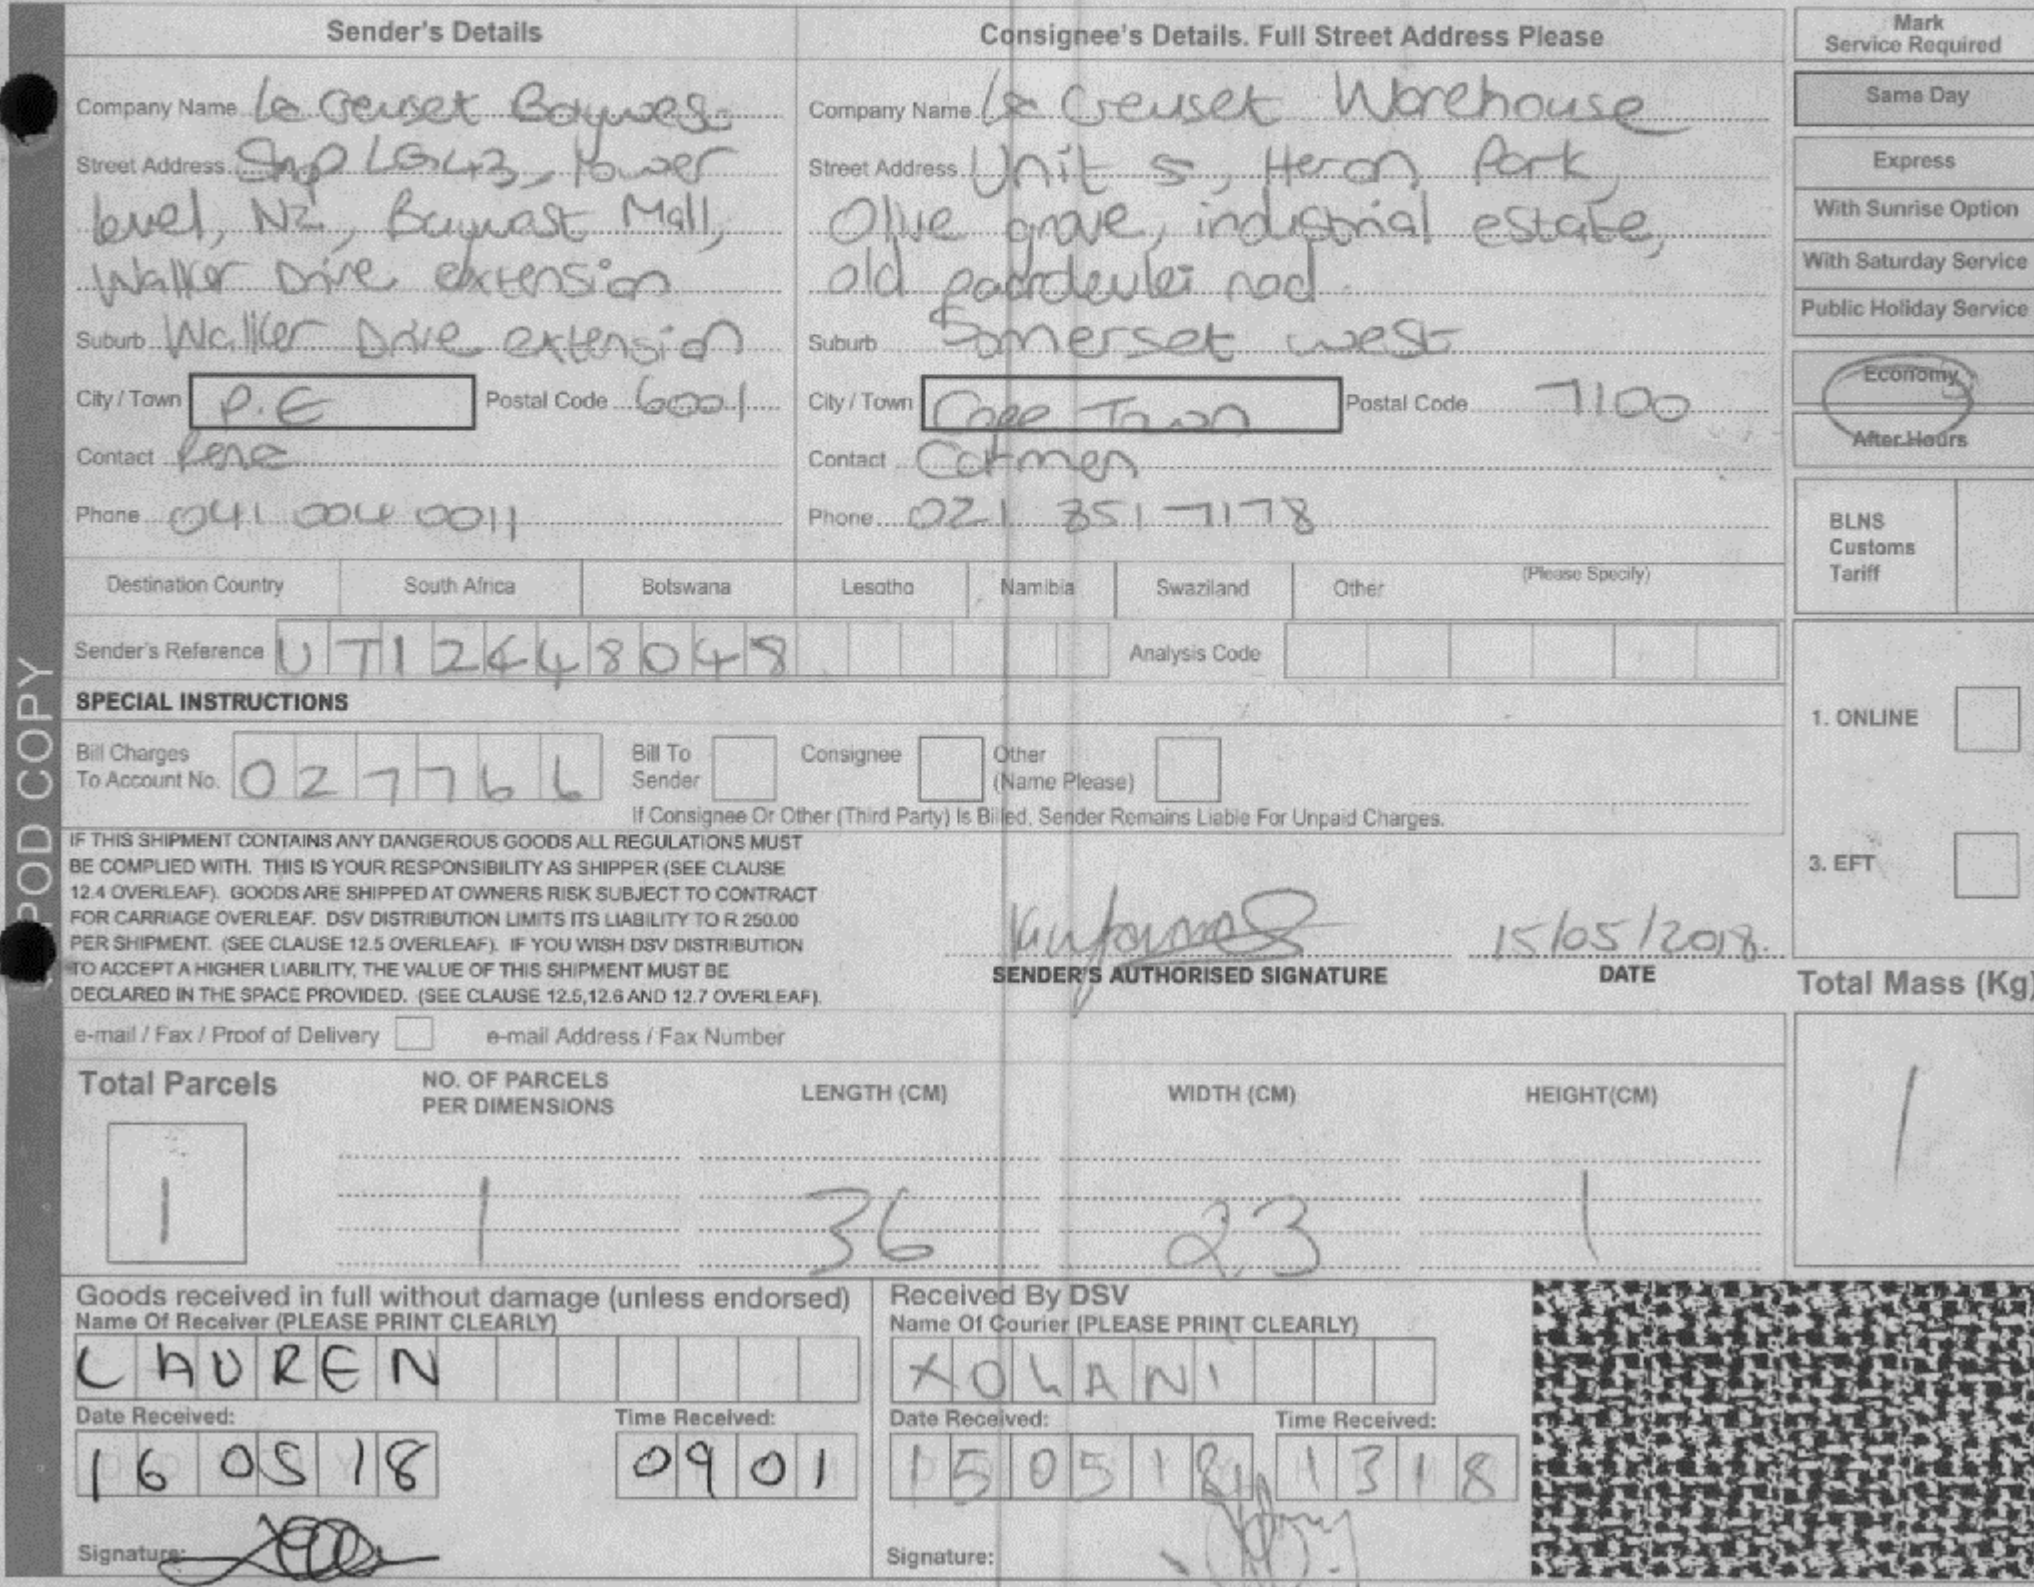 Sender's Details
Company Name Le Creuset Baywest
Street Address Shop LG43, lower
level, N2, Baywest Mall,
Walker Drive extension
Suburb Walker Drive extension
City / Town P.E Postal Code 6001
Contact Rene
Phone 041 004 0011
Consignee's Details. Full Street Address Please
Company Name Le Creuset Warehouse
Street Address Unit 5, Heron Park,
Olive grove, industrial estate,
old paardevlei road
Suburb Somerset west
City / Town Cape Town Postal Code 7100
Contact Carmen
Phone 021 851 7178
Mark
Service Required
Same Day
Express
With Sunrise Option
With Saturday Service
Public Holiday Service
Economy
After Hours
BLNS
Customs
Tariff
Destination Country South Africa Botswana Lesotho Namibia Swaziland Other (Please Specify)
Sender's Reference UTI2448048 Analysis Code
SPECIAL INSTRUCTIONS
Bill Charges
To Account No. 027766
Bill To
Sender
Consignee
Other
(Name Please)
If Consignee Or Other (Third Party) Is Billed, Sender Remains Liable For Unpaid Charges.
1. ONLINE
3. EFT
POD COPY
IF THIS SHIPMENT CONTAINS ANY DANGEROUS GOODS ALL REGULATIONS MUST
BE COMPLIED WITH. THIS IS YOUR RESPONSIBILITY AS SHIPPER (SEE CLAUSE
12.4 OVERLEAF). GOODS ARE SHIPPED AT OWNERS RISK SUBJECT TO CONTRACT
FOR CARRIAGE OVERLEAF. DSV DISTRIBUTION LIMITS ITS LIABILITY TO R 250.00
PER SHIPMENT. (SEE CLAUSE 12.5 OVERLEAF). IF YOU WISH DSV DISTRIBUTION
TO ACCEPT A HIGHER LIABILITY, THE VALUE OF THIS SHIPMENT MUST BE
DECLARED IN THE SPACE PROVIDED. (SEE CLAUSE 12.5,12.6 AND 12.7 OVERLEAF).
15/05/2018.
SENDER'S AUTHORISED SIGNATURE DATE
Total Mass (Kg)
1
e-mail / Fax / Proof of Delivery e-mail Address / Fax Number
Total Parcels
1
NO. OF PARCELS
PER DIMENSIONS
LENGTH (CM) WIDTH (CM) HEIGHT(CM)
1 36 23 1
Goods received in full without damage (unless endorsed)
Name Of Receiver (PLEASE PRINT CLEARLY)
LAUREN
Date Received: Time Received:
16 05 18 0901
Signature:
Received By DSV
Name Of Courier (PLEASE PRINT CLEARLY)
XOLANI
Date Received: Time Received:
15 05 18 1318
Signature: